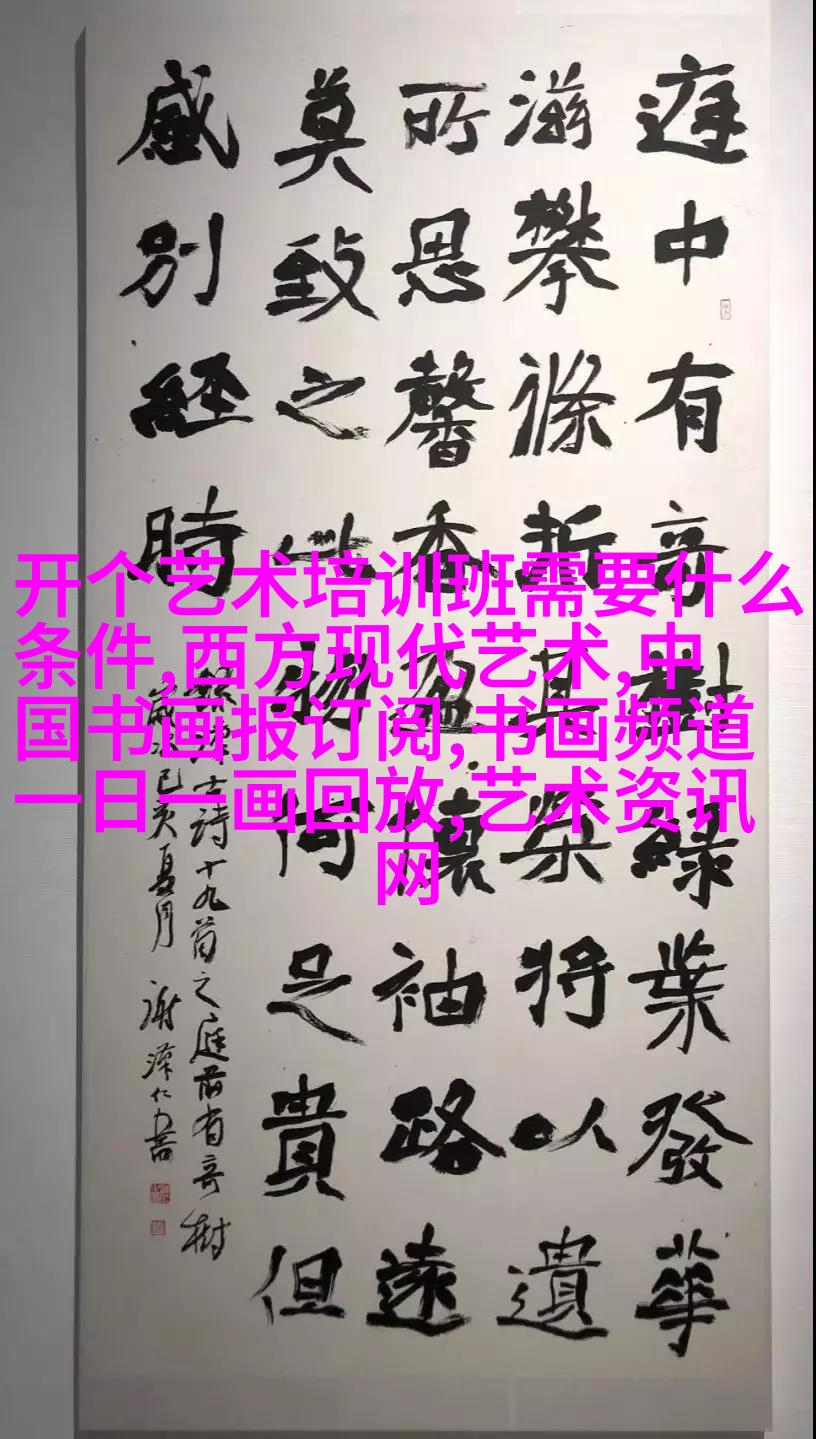 庭中有奇樹緑葉發華
滋攀條折其榮將以遺
所思馨香盈懷袖路遠
莫致之此物何足貴但
感別經時
古詩十九首之庭前有奇樹
歲次己亥夏月 謝澤仁書
开个艺术培训班需要什么
条件,西方现代艺术,中
国书画报订阅,书画频道
一日一画回放,艺术资讯
网